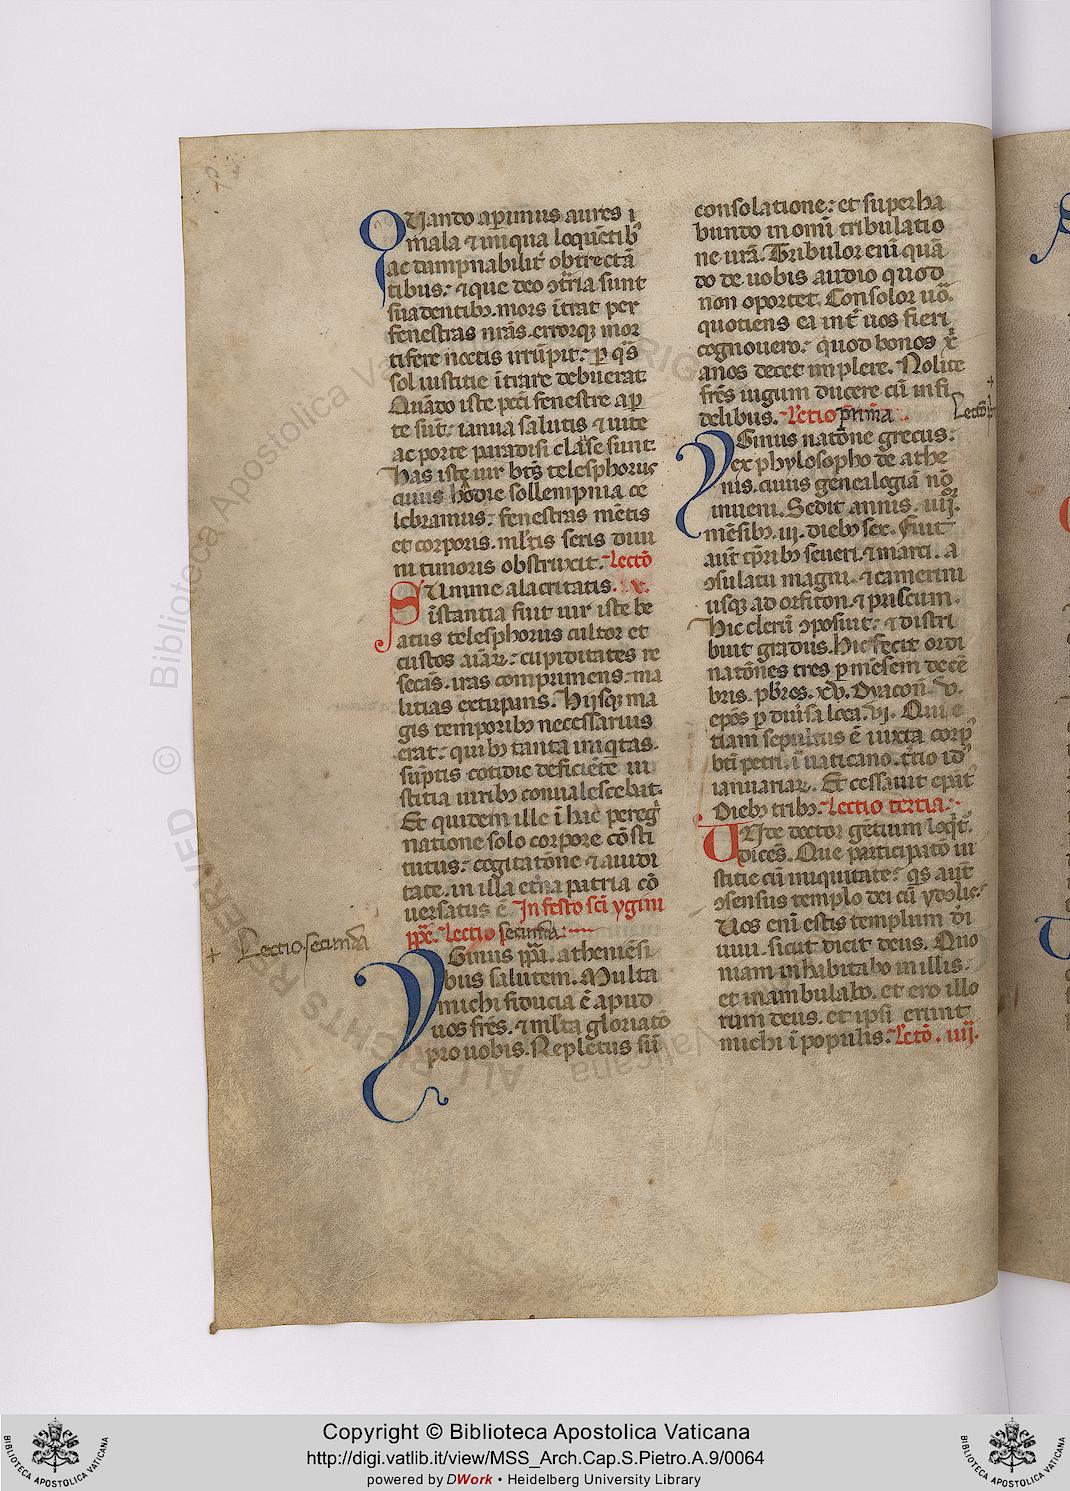 Quando aperimus aures i
mala & iniqua loquētib᷒
ac dampnabilit᷑ obtrectā
tibus: & que deo ↄt̄ria sunt
suadentibꝫ. mors ītrat per
fenestras nr̄as. errorqꝫ mor
tifere noctis irrūpit: ꝑ q̄s
sol iustitie ītrare debuerat.
Quādo iste pcc̄i fenestre aꝑ
te sūt: ianua salutis & uite
ac porte paradisi clause sunt.
Has iste uir bt̄s telesphorus
cuius hodie sollempnia ce
lebramus: fenestras mētis
et corporis. ml̄tis seris diui
ni timoris obstruxit. Lectō
Summe alacritatis. .ix.
īstantia fuit uir iste be
atus telesphorus cultor et
custos aīaꝝ: cupiditates re
secās. iras comprimens. ma
litias extirpans. Hijsqꝫ ma
gis temporibꝫ necessarius
erat: quibꝫ tanta iniqtas.
sūptis cotidie deficiēte iu
stitia uiribꝫ conualescebat.
Et quidem ille ī hac pereg
natione solo corpore cōsti
tutus: cogitatōne & auidi
tate. in illa et̄na patria cō
uersatus ē. In festo sc̄i ygini
pp̄e. Lectio secunda.
+ Lectio. secunda
Yginus pp̄a. atheniēsi
bus salutem. Multa
michi fiducia ē apud
uos fr̄es. & ml̄ta gloriatō
pro uobis. Repletus sū
consolatione: et superha
bundo in omni tribulatio
ne ur̄a. Tribulor enī quā
do de uobis audio quod
non oportet. Consolor ūo.
quotiens ea int̄ uos fieri
cognouero: quod bonos x̄r
anos decet implere. Nolite
fr̄es iugum ducere cū infi
delibus. Lectio prima
+
Lectō
Yginus natōne grecus:
ex phylosopho de athe
nis. cuius genealogiā nō
inueni. Sedit annis. iiij.
mēsibꝫ. iij. diebꝫ sex. Fuit
aut̄ tp̄ribꝫ seueri. & marci. a
ↄsulatu magni. & camerini
usqꝫ ad orfiton. & priscum.
Hic clerū ↄposuit: & distri
buit gradus. Hic fecit ordi
natōnes tres ꝑ mēsem decē
bris. pb̄res. xv. Dyacoñ. v.
ep̄os ꝑ diūsa loca. vi. Qui e
tiam sepultus ē iuxta corp᷒
bt̄i petri. ī uaticano. t̄tio id᷒
ianuariaꝝ. Et cessauit ep̄at᷒
diebꝫ tribꝫ. Lectio tertia.
Iste doctor gētium loq̄t᷑.
dicēs. Que participatō iu
stitie cū iniquitate: q̄s aut̄
ↄsensus templo dei cū ydolis:
Uos enī estis templum dī
uiui. sicut dicit deus. Quo
niam inhabitabo in illis:
et inambulabo. et ero illo
rum deus. et ipsi erunt
michi ī populis. Lectō. iiij.
ALL RIGHTS RESERVED © Biblioteca Apostolica Vaticana
Copyright © Biblioteca Apostolica Vaticana
http://digi.vatlib.it/view/MSS_Arch.Cap.S.Pietro.A.9/0064
powered by DWork • Heidelberg University Library
BIBLIOTECA APOSTOLICA VATICANA
BIBLIOTECA APOSTOLICA VATICANA